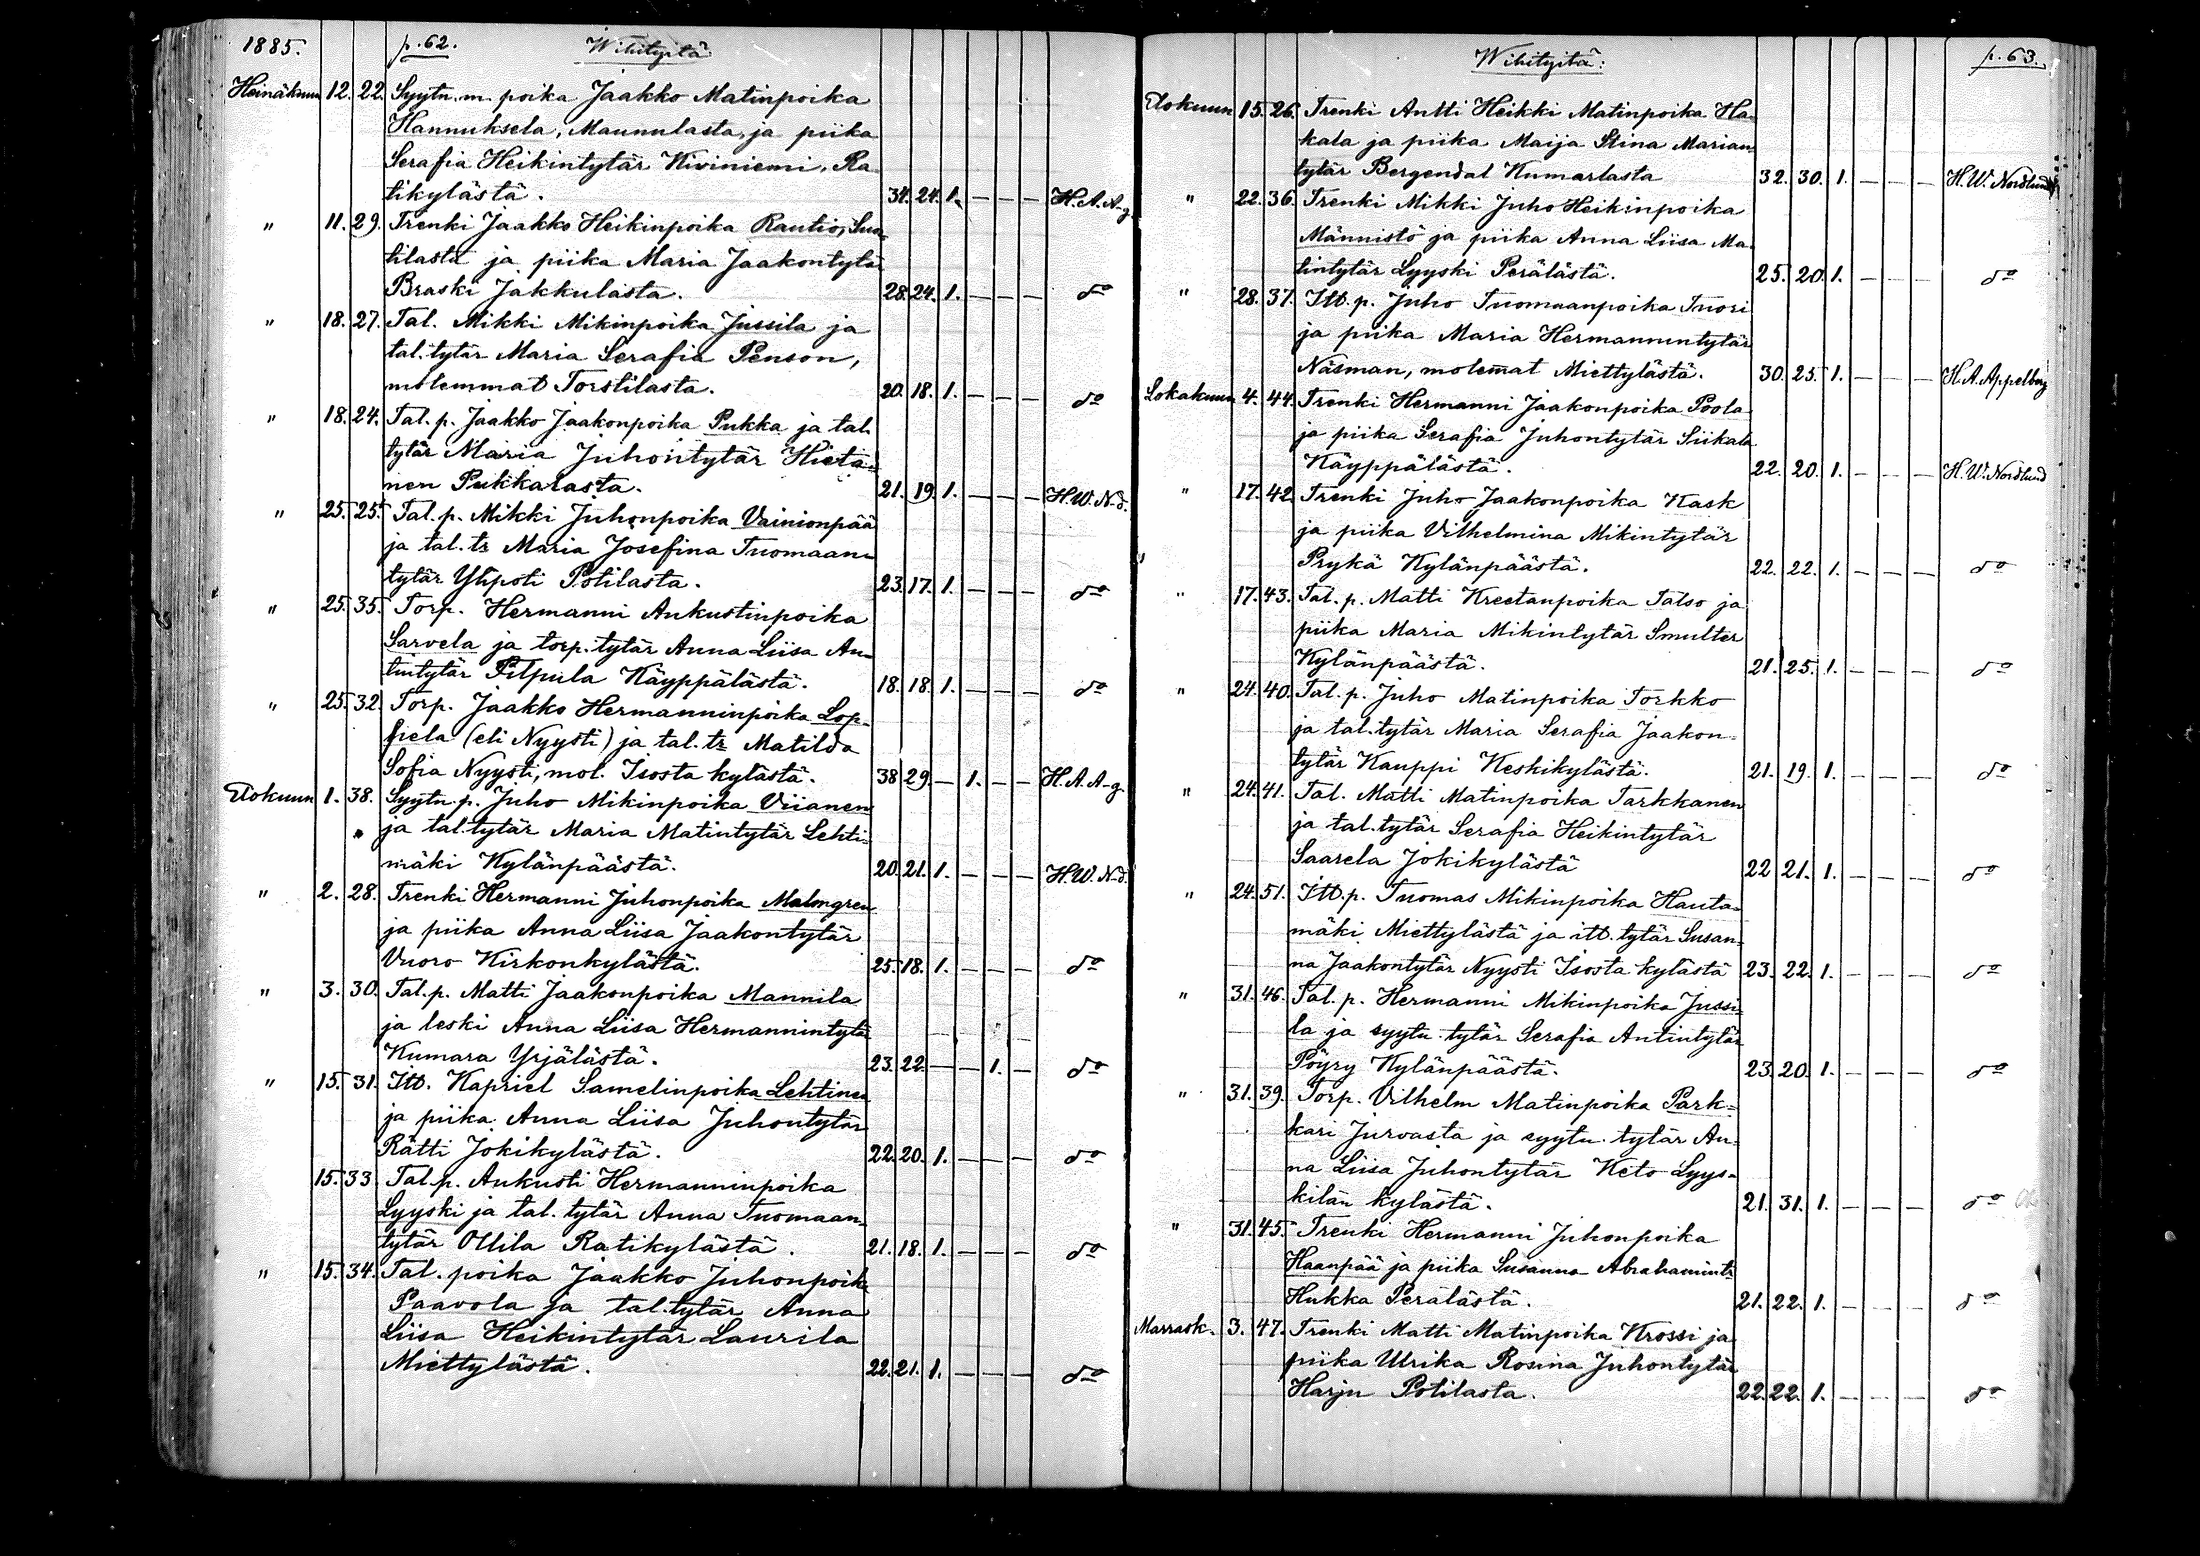 1885. p. 62. Wihityitä
Heinäkuun 12. 22. Syytn. m. poika Jaakko Matinpoika
Hannuksela, Maunulasta, ja piika
Serafia Heikintytär Kiviniemi, Ra
tikylästä. 34. 24. 1. — — — H. A. A-g.
" 11. 29. Trenki Jaakko Heikinpoika Rautio, Suu
tilasta ja piika Maria Jaakontytär
Braski Jakkulasta. 28. 24. 1. — — — do
" 18. 27. Tal. Mikki Mikinpoika Jussila ja
tal. tytär Maria Serafia Penson,
molemmat Torstilasta. 20. 18. 1. — — — do
" 18. 24. Tal. p. Jaakko Jaakonpoika Pukka ja tal.
tytär Maria Juhontytär Hieta-
nen Pukkalasta. 21. 19. 1. — — — H. W. N-d.
" 25. 25. Tal. p. Mikki Juhonpoika Vainionpää
ja tal. tr Maria Josefina Tuomaan-
tytär Ylipoti Potilasta. 23. 17. 1. — — — do
" 25. 35. Torp. Hermanni Aukustinpoika
Sarvela ja torp. tytär Anna Liisa An-
tintytär Pilpula Käyppälästä. 18. 18. 1. — — — do
" 25. 32. Torp. Jaakko Hermanninpoika Lop-
fiela (eli Nyysti) ja tal. tr Matilda
Sofia Nyysti, mol. Isosta kylästä. 38 29. — 1. — — H. A. A-g.
Elokuun 1. 38. Syytn p. Juho Mikinpoika Viianen
ja tal. tytär Maria Matintytär Lehti-
mäki Kylänpäästä. 20. 21. 1. — — — H. W. N-d.
" 2. 28. Trenki Hermanni Juhonpoika Malmgren
ja piika Anna Liisa Jaakontytär
Vuoro Kirkonkylästä. 25. 18. 1. — — — do
" 3. 30. Tal. p. Matti Jaakonpoika Mannila
ja leski Anna Liisa Hermannintytär
Kumara Yrjälästä. 23. 22. — — 1. — do
" 15. 31. Itt. Kapriel Samelinpoika Lehtinen
ja piika Anna Liisa Juhontytär
Rätti Jokikylästä. 22. 20. 1. — — — do
15. 33. Tal. p. Aukusti Hermanninpoika
Lyyski ja tal. tytär Anna Tuomaan-
tytär Ollila Ratikylästä. 21. 18. 1. — — — do
" 15. 34. Tal. poika Jaakko Juhonpoika
Paavola ja tal. tytär Anna
Liisa Heikintytär Laurila
Miettylästä. 22. 21. 1. — — — do
Wihityitä: p. 63.
Elokuun 15. 26. Trenki Antti Heikki Matinpoika Ha-
kala ja piika Maija Stina Marian
tytär Bergendal Kumarlasta 32. 30. 1. — — — H. W. Nordlund
" 22. 36. Trenki Mikki Juho Heikinpoika
Männistö ja piika Anna Liisa Ma-
tintytär Lyyski Perälästä. 25. 20. 1. — — — do
" 28. 37. Itt. p. Juho Tuomaanpoika Tuori
ja piika Maria Hermannintytär
Näsman, molemat Miettylästä. 30. 25. 1. — — — H. A. Appelberg
Lokakuun 4. 44. Trenki Hermanni Jaakonpoika Poola
ja piika Serafia Juhontytär Siikala
Käyppälästä. 22. 20. 1. — — — H. W. Nordlund
" 17. 42. Trenki Juho Jaakonpoika Kask
ja piika Vilhelmina Mikintytär
Prykä Kylänpäästä. 22. 22. 1. — — — do
" 17. 43. Tal. p. Matti Kreetanpoika Talso ja
piika Maria Mikintytär Smulter
Kylänpäästä. 21. 25. 1. — — — do
" 24. 40. Tal. p. Juho Matinpoika Torkko
ja tal. tytär Maria Serafia Jaakon-
tytär Kauppi Keskikylästä. 21. 19. 1. — — — do
" 24. 41. Tal. Matti Matinpoika Tarkkanen
ja tal. tytär Serafia Heikintytär
Saarela Jokikylästä 22 21. 1. — — — do
" 24. 51. Itt. p. Tuomas Mikinpoika Hauta-
mäki Miettylästä ja itt. tytär Susan-
na Jaakontytär Nyysti Isosta kylästä 23. 22. 1. — — — do
" 31. 46. Tal. p. Hermanni Mikinpoika Jussi-
la ja syytn. tytär Serafia Antintytär
Pöyry Kylänpäästä. 23. 20. 1. — — — do
" 31. 39. Torp. Vilhelm Matinpoika Park-
kari Jurvasta ja syytn. tytär An-
na Liisa Juhontytär Keto Lyys-
kilän kylästä. 21. 31. 1. — — — do
" 31. 45. Trenki Hermanni Juhonpoika
Haanpää ja piika Susanna Abrahamintr
Hukka Perälästä. 21. 22. 1. — — — do
Marrask. 3. 47. Trenki Matti Matinpoika Krossi ja
piika Ulrika Rosina Juhontytär
Harju Potilasta. 22. 22. 1. — — — do